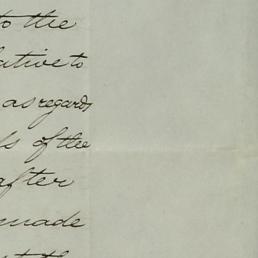 to the
lative to
as regards
ls of the
after
made